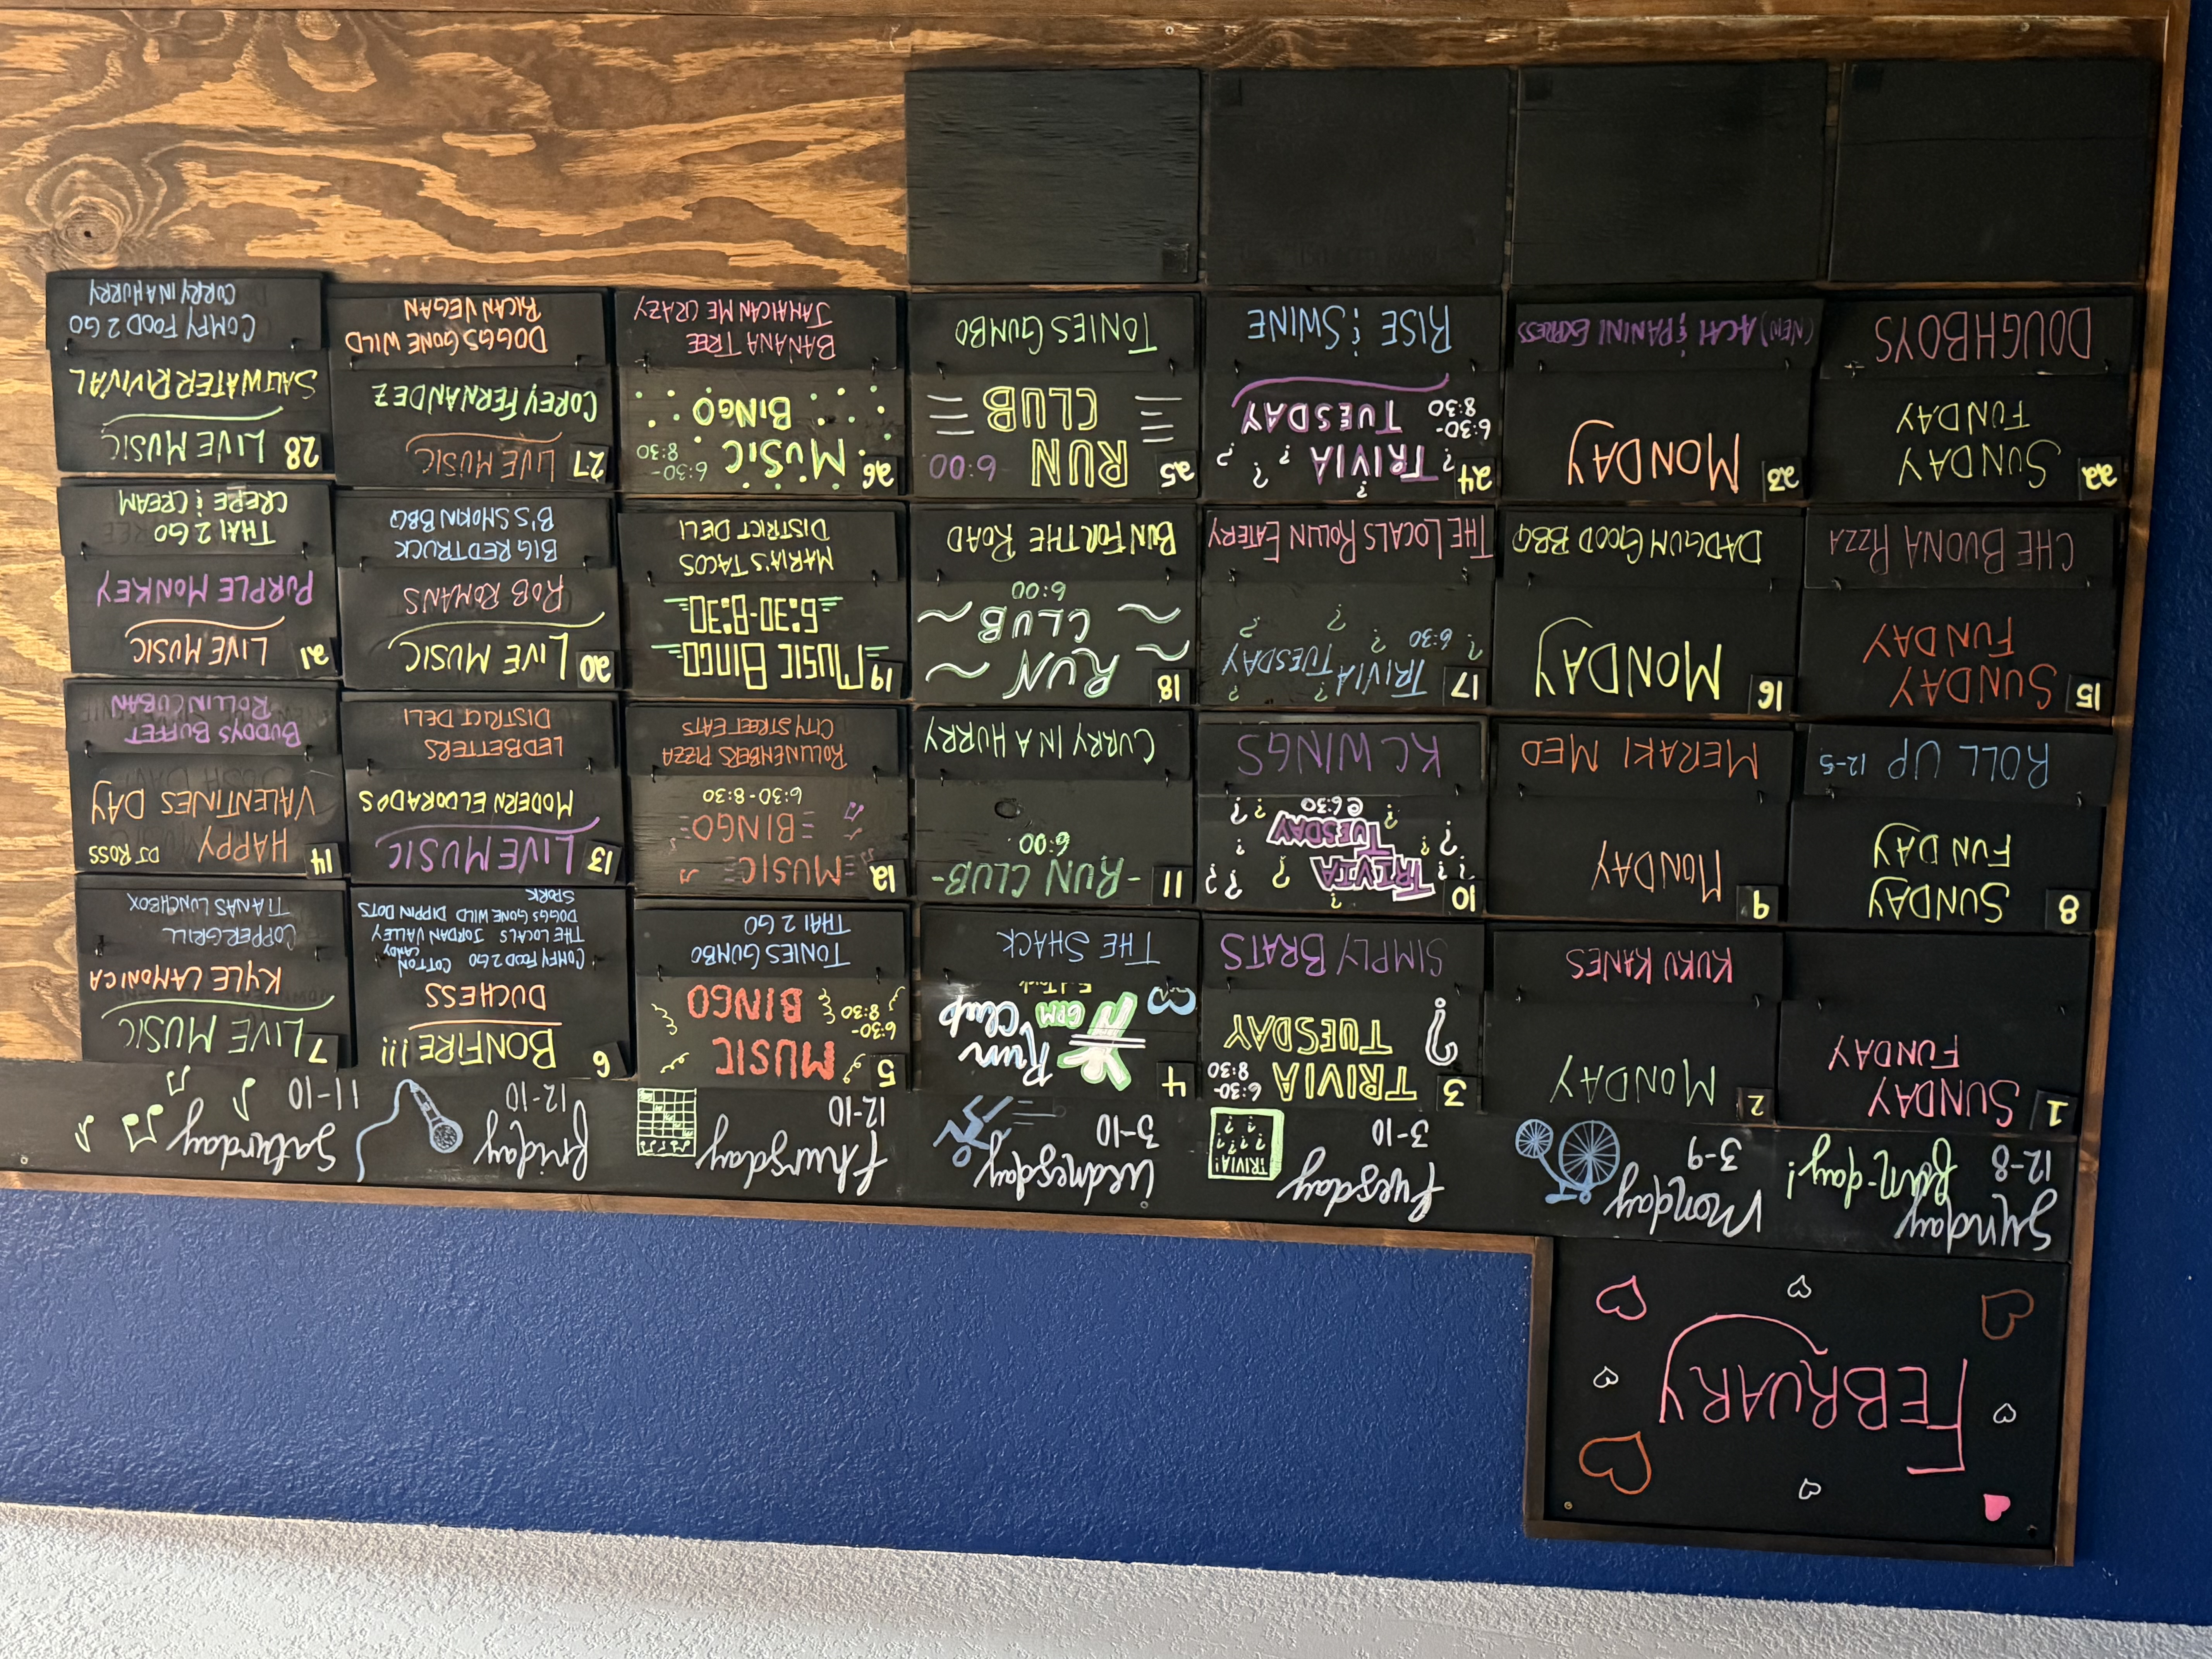 FEBRUARY
Sunday
12-8
Fun-day!
Monday
3-9
Tuesday
3-10
TRIVIA!
? ? ? ?
Wednesday
3-10
Thursday
12-10
Friday
12-10
Saturday
11-10
1
SUNDAY
FUNDAY
2
MONDAY
KUKU KANES
3
TRIVIA 6:30-
8:30
TUESDAY
?
SIMPLY BRATS
4
Run
Club
6PM
THE SHACK
5
MUSIC
6:30-
8:30
BINGO
TONIES GUMBO
THAI 2 GO
6
BONFIRE!!!
DUCHESS
COMFY FOOD 2 GO COTTON
CANDY
THE LOCALS JORDAN VALLEY
DOGGS GONE WILD DIPPIN DOTS
SPORK
7
LIVE MUSIC
KYLE LAMONICA
COPPER GRILL
TIANAS LUNCHBOX
8
SUNDAY
FUNDAY
ROLL UP 12-5
9
MONDAY
MERAKI MED
10
TRIVIA
TUESDAY
@6:30
KC WINGS
11
-RUN CLUB-
6:00
CURRY IN A HURRY
12
MUSIC
BINGO
6:30-8:30
ROLLINENBERS PIZZA
CITY STREET EATS
13
LIVE MUSIC
MODERN ELDORADOS
LEDBETTERS
DISTRICT DELI
14
HAPPY DJ ROSS
VALENTINES DAY
BUDDYS BUFFET
ROLLIN CUBAN
15
SUNDAY
FUNDAY
CHE BUONA PIZZA
16
MONDAY
DADGUM GOOD BBQ
17
TRIVIA TUESDAY
6:30
THE LOCALS ROLLIN EATERY
18
RUN
CLUB
6:00
BUN FOR THE ROAD
19
MUSIC BINGO
6:30-8:30
MARIA'S TACOS
DISTRICT DELI
20
LIVE MUSIC
ROB ROMANS
BIG RED TRUCK
B'S SMOKIN BBQ
21
LIVE MUSIC
PURPLE MONKEY
THAI 2 GO
CREPE & CREAM
22
SUNDAY
FUNDAY
DOUGHBOYS
23
MONDAY
(NEW) ACAI & PANINI EXPRESS
24
TRIVIA
6:30-
8:30
TUESDAY
RISE & SWINE
25
RUN 6:00
CLUB
TONIES GUMBO
26
MUSIC 6:30-
8:30
BINGO
BANANA TREE
JAMAICAN ME CRAZY
27
LIVE MUSIC
COREY FERNANDEZ
DOGGS GONE WILD
RICAN VEGAN
28
LIVE MUSIC
SALTWATER RIVIVAL
COMFY FOOD 2 GO
CURRY IN A HURRY